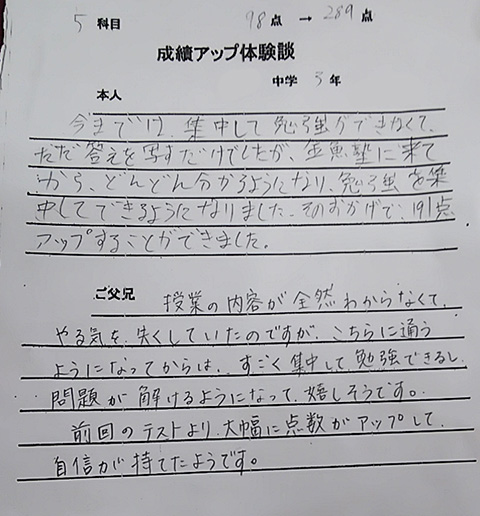 5 科目 98点 → 289点
成績アップ体験談
中学 3 年
本人
今までは、集中して勉強ができなくて、
ただ答えを写すだけでしたが、金魚塾に来て
から、どんどん分かるようになり、勉強を集
中してできるようになりました。そのおかげで、191点
アップすることができました。
ご父兄 授業の内容が全然わからなくて、
やる気を失くしていたのですが、こちらに通う
ようになってからは、すごく集中して勉強できるし、
問題が解けるようになって、嬉しそうです。
前回のテストより、大幅に点数がアップして、
自信が持てたようです。